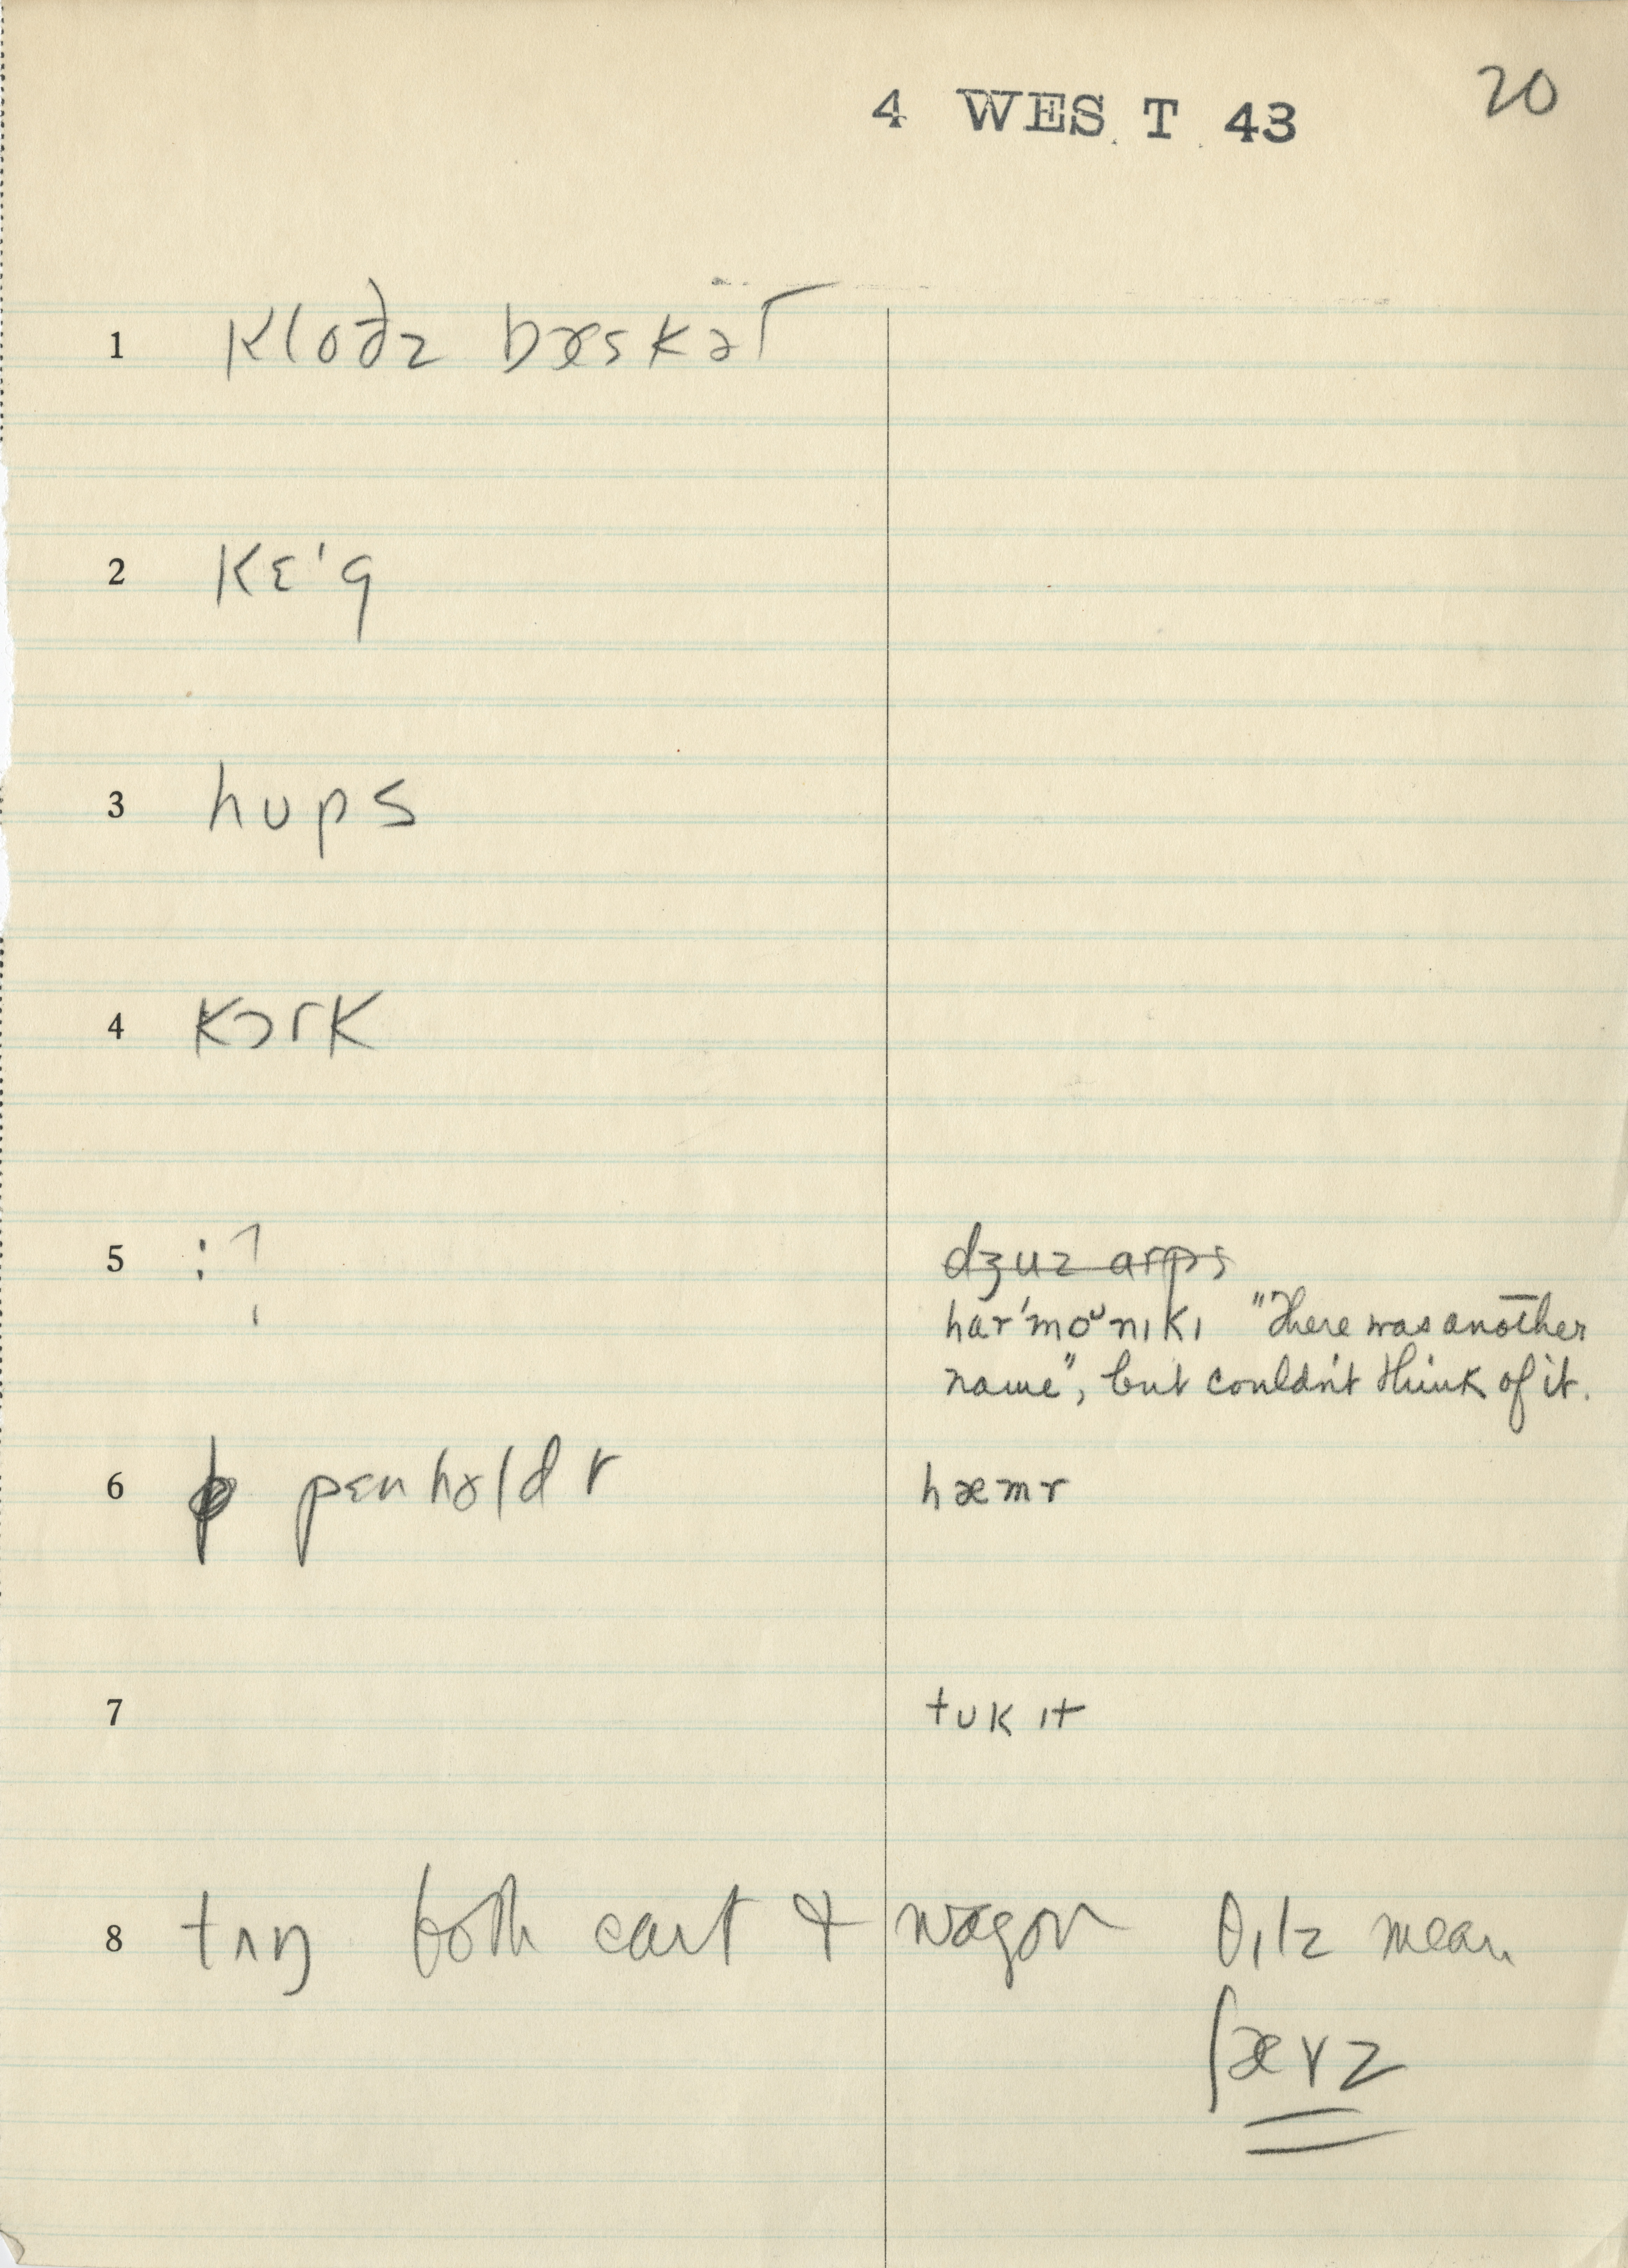 4 WEST 43 20
1 kloðz bæskət
2 kɛ'g
3 hups
4 kɔrk
5 : ? dʒuz arps
har'moᵘnɪkɪ "There was another
name", but couldn't think of it.
6 pɛnholdr hæmr
7 tuk ɪt
8 tʌŋ both cart & wagon θɪlz mean
ʃævz